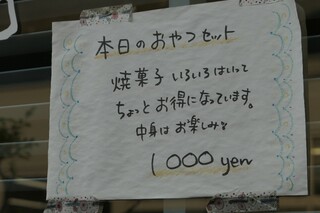 本日のおやつセット
焼菓子いろいろはいって
ちょっとお得になっています。
中身はお楽しみ
1000 yen